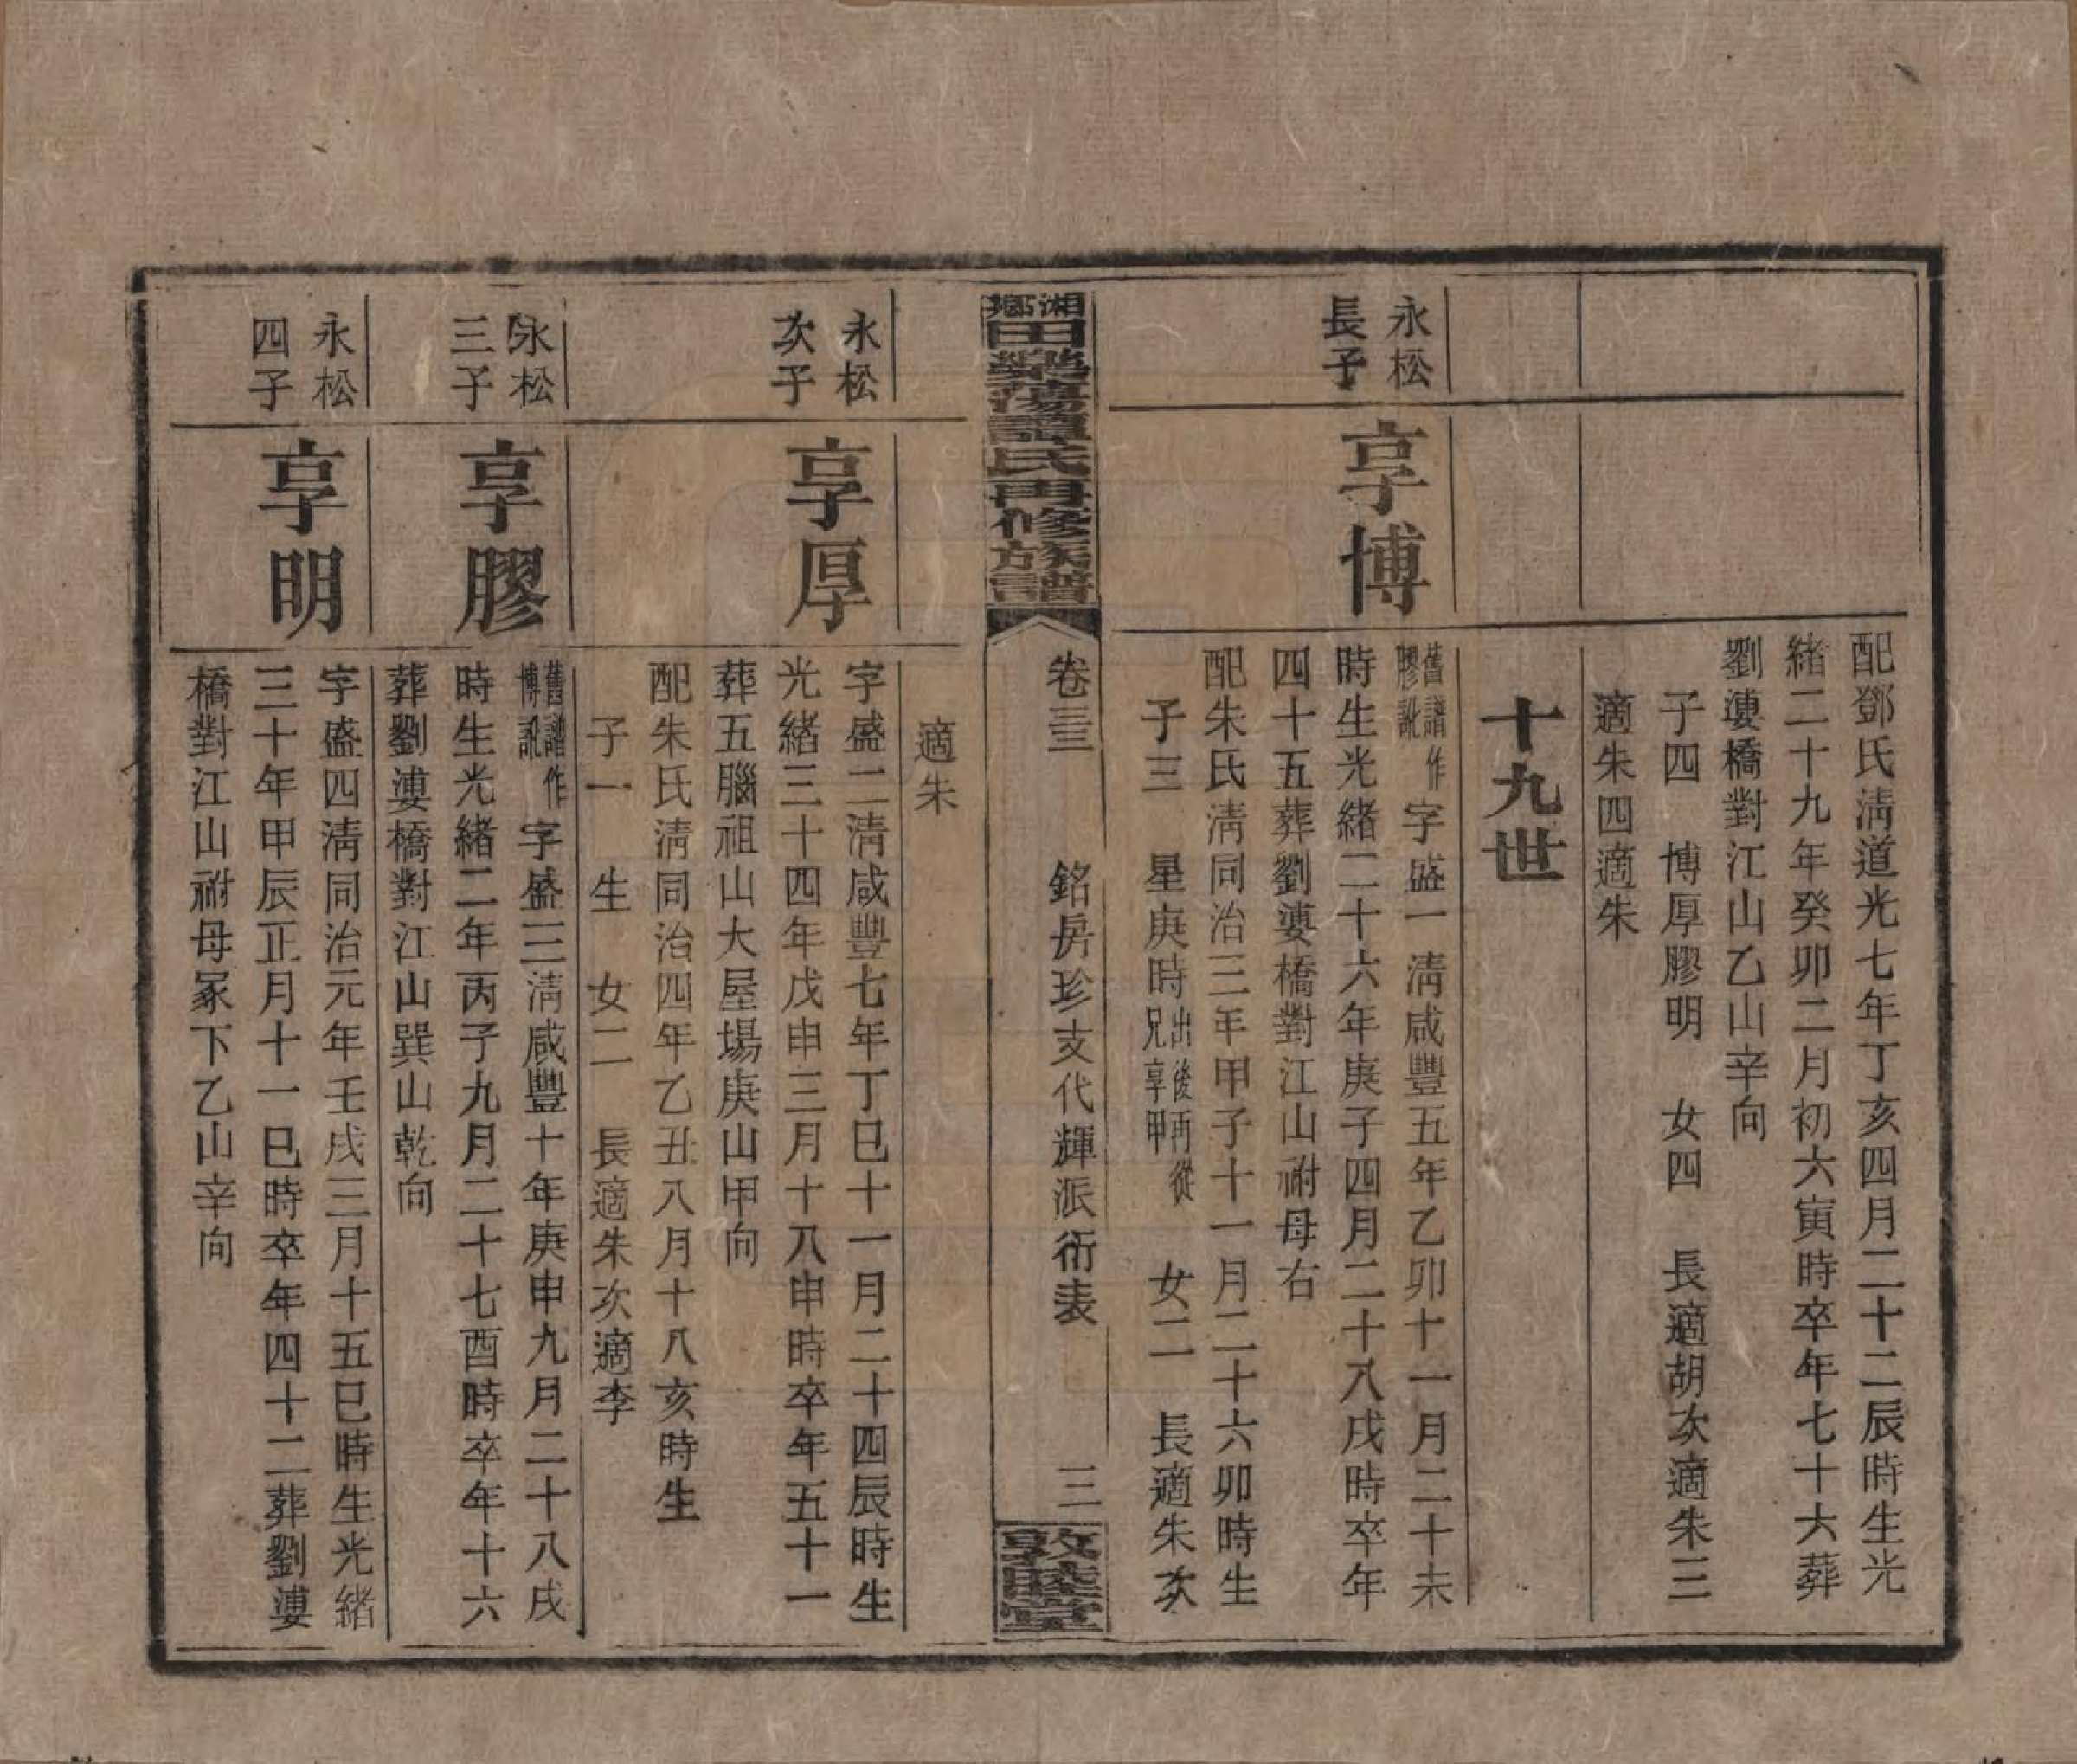 配鄧氏淸道光七年丁亥四月二十二辰時生光
緒二十九年癸卯二月初六寅時卒年七十六葬
劉漊橋對江山乙山辛向
子四　博厚膠明　女四　長適胡次適朱三
適朱四適朱
十九世
永松
長子
享博
舊譜作
膠訛
字盛一淸咸豐五年乙卯十一月二十未
時生光緒二十六年庚子四月二十八戌時卒年
四十五葬劉漊橋對江山祔母右
配朱氏淸同治三年甲子十一月二十六卯時生
子三　星庚時
出後再從
兄享甲
女二　長適朱次
湘鄉
田樂蕩譚氏再修族譜
卷三三　銘房珍支代輝派衍表　三
敦睦堂
適朱
永松
次子
享厚
字盛二淸咸豐七年丁巳十一月二十四辰時生
光緒三十四年戊申三月十八申時卒年五十一
葬五腦祖山大屋場庚山甲向
配朱氏淸同治四年乙丑八月十八亥時生
子一　生　女二　長適朱次適李
永松
三子
享膠
舊譜作
博訛
字盛三淸咸豐十年庚申九月二十八戌
時生光緒二年丙子九月二十七酉時卒年十六
葬劉漊橋對江山巽山乾向
永松
四子
享明
字盛四淸同治元年壬戌三月十五巳時生光緒
三十年甲辰正月十一巳時卒年四十二葬劉漊
橋對江山祔母冢下乙山辛向